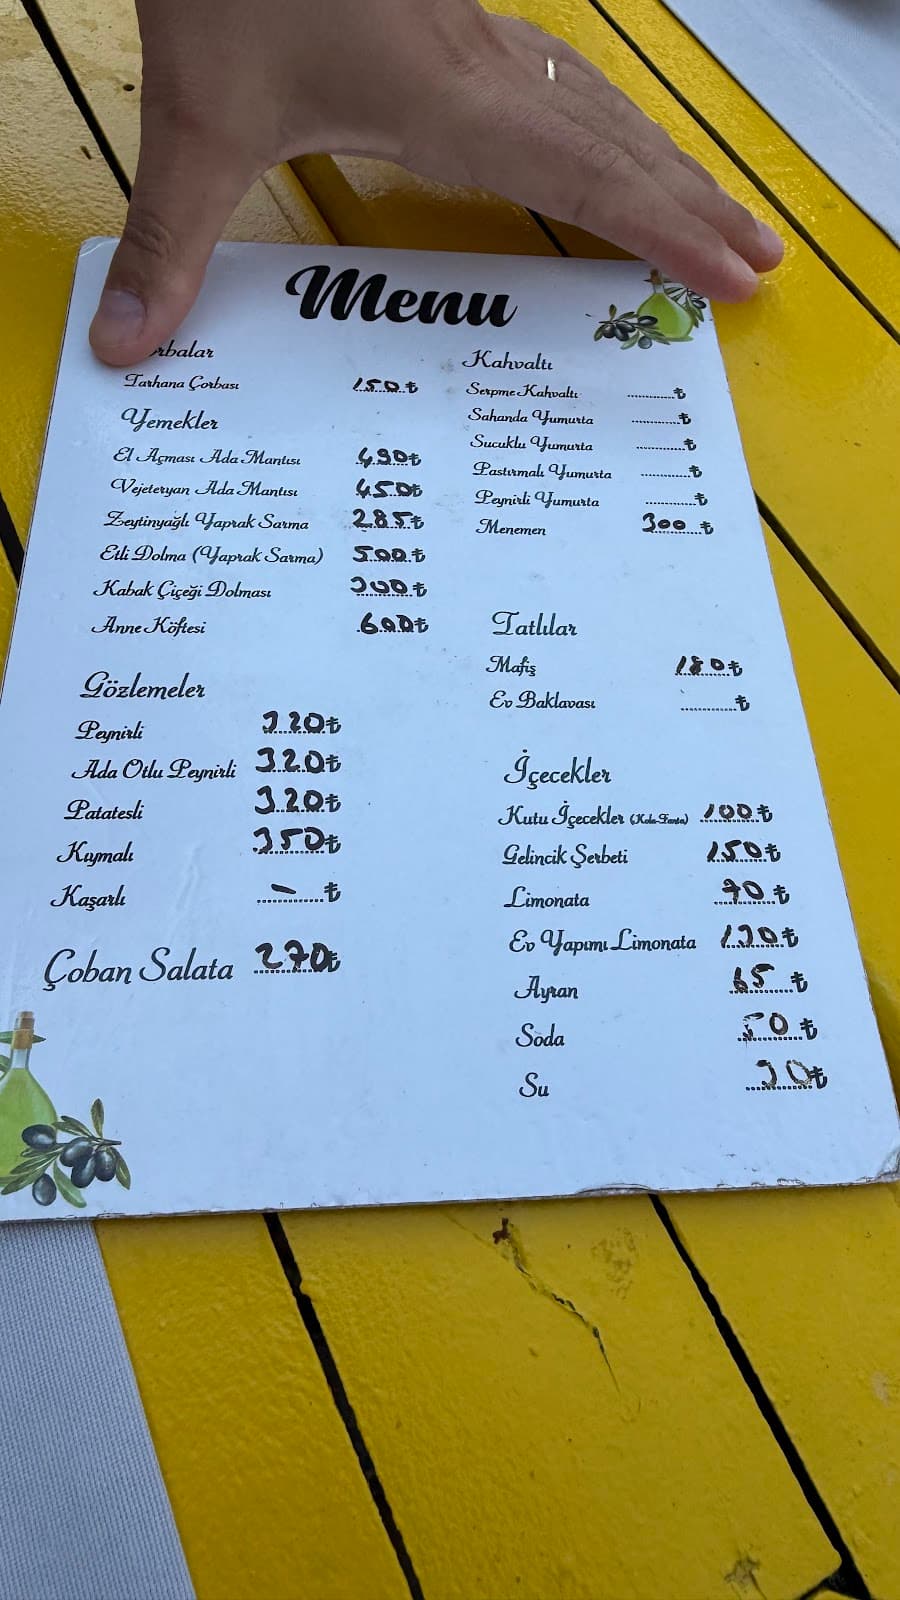 Menu
rbalar
Tarhana Çorbası 150 ₺
Yemekler
El Açması Ada Mantısı 490 ₺
Vejeteryan Ada Mantısı 450 ₺
Zeytinyağlı Yaprak Sarma 285 ₺
Etli Dolma (Yaprak Sarma) 500 ₺
Kabak Çiçeği Dolması 300 ₺
Anne Köftesi 600 ₺
Gözlemeler
Peynirli 320 ₺
Ada Otlu Peynirli 320 ₺
Patatesli 320 ₺
Kıymalı 350 ₺
Kaşarlı - ₺
Çoban Salata 270 ₺
Kahvaltı
Serpme Kahvaltı ............₺
Sahanda Yumurta ............₺
Sucuklu Yumurta ............₺
Pastırmalı Yumurta ............₺
Peynirli Yumurta ............₺
Menemen 300 ₺
Tatlılar
Mafiş 180 ₺
Ev Baklavası ............₺
İçecekler
Kutu İçecekler (Kola-Fanta) 100 ₺
Gelincik Şerbeti 150 ₺
Limonata 70 ₺
Ev Yapımı Limonata 130 ₺
Ayran 65 ₺
Soda 50 ₺
Su 30 ₺